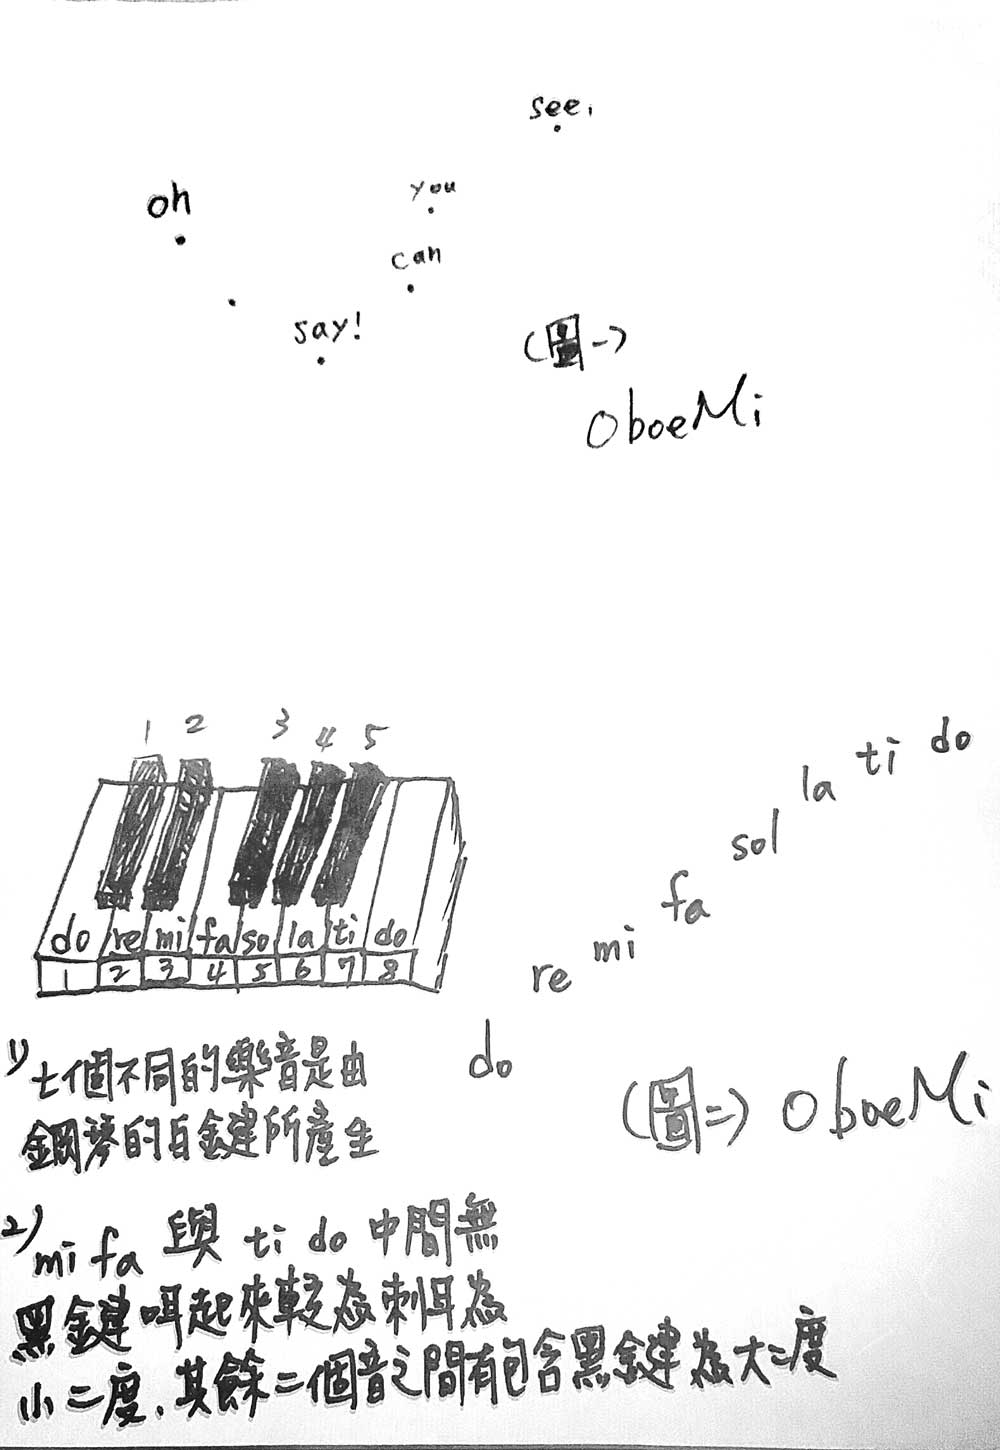 see,
oh
you
can
say!
(圖一)
OboeMi
1 2 3 4 5
do re mi fa sol la ti do
do re mi fa so la ti do
1 2 3 4 5 6 7 8
1) 七個不同的樂音是由
鋼琴的白鍵所產生
(圖二) OboeMi
2) mi fa 與 ti do 中間無
黑鍵唱起來較為刺耳為
小二度,其餘二個音之間有包含黑鍵為大二度